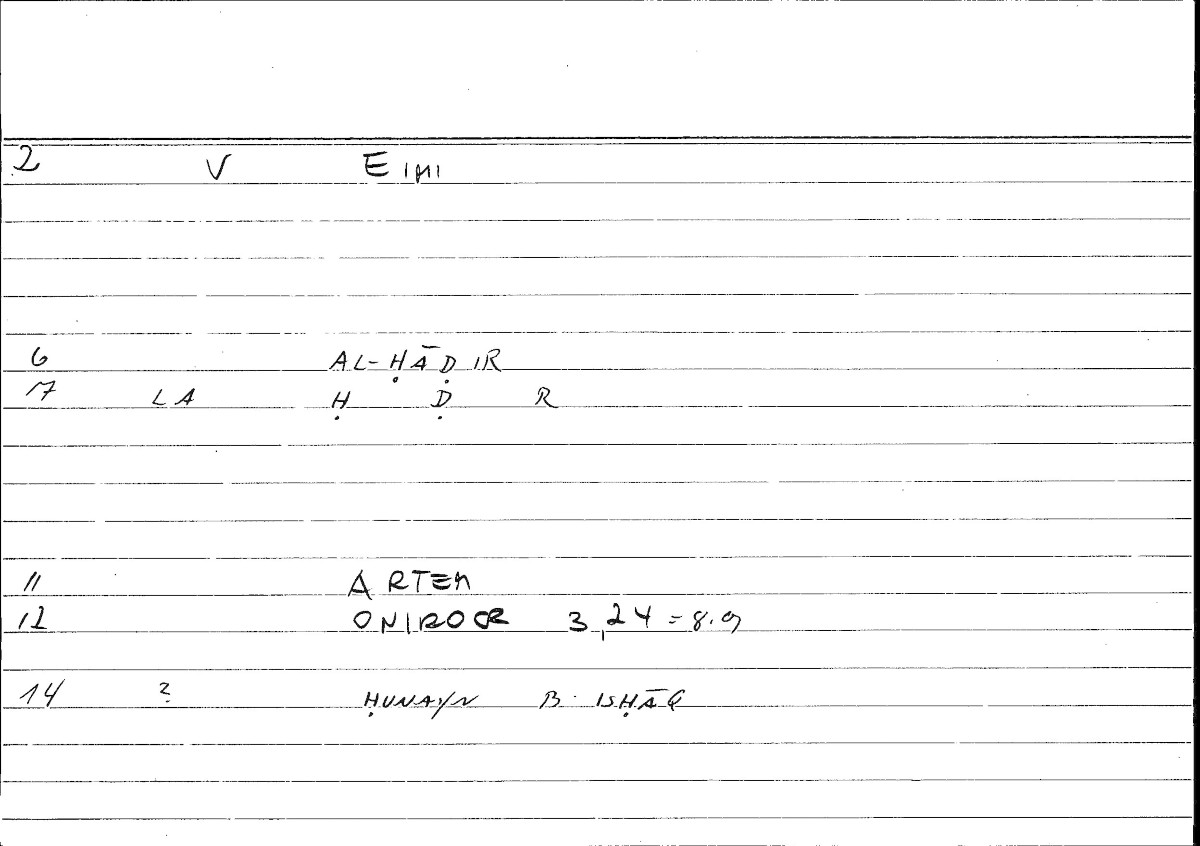 2 V EIMI
6 AL-ḤĀḌIR
17 LA Ḥ Ḍ R
11 ARTEM
12 ONIROCR 3,24 = 8.9
14 ? ḤUNAYN B. ISḤĀQ